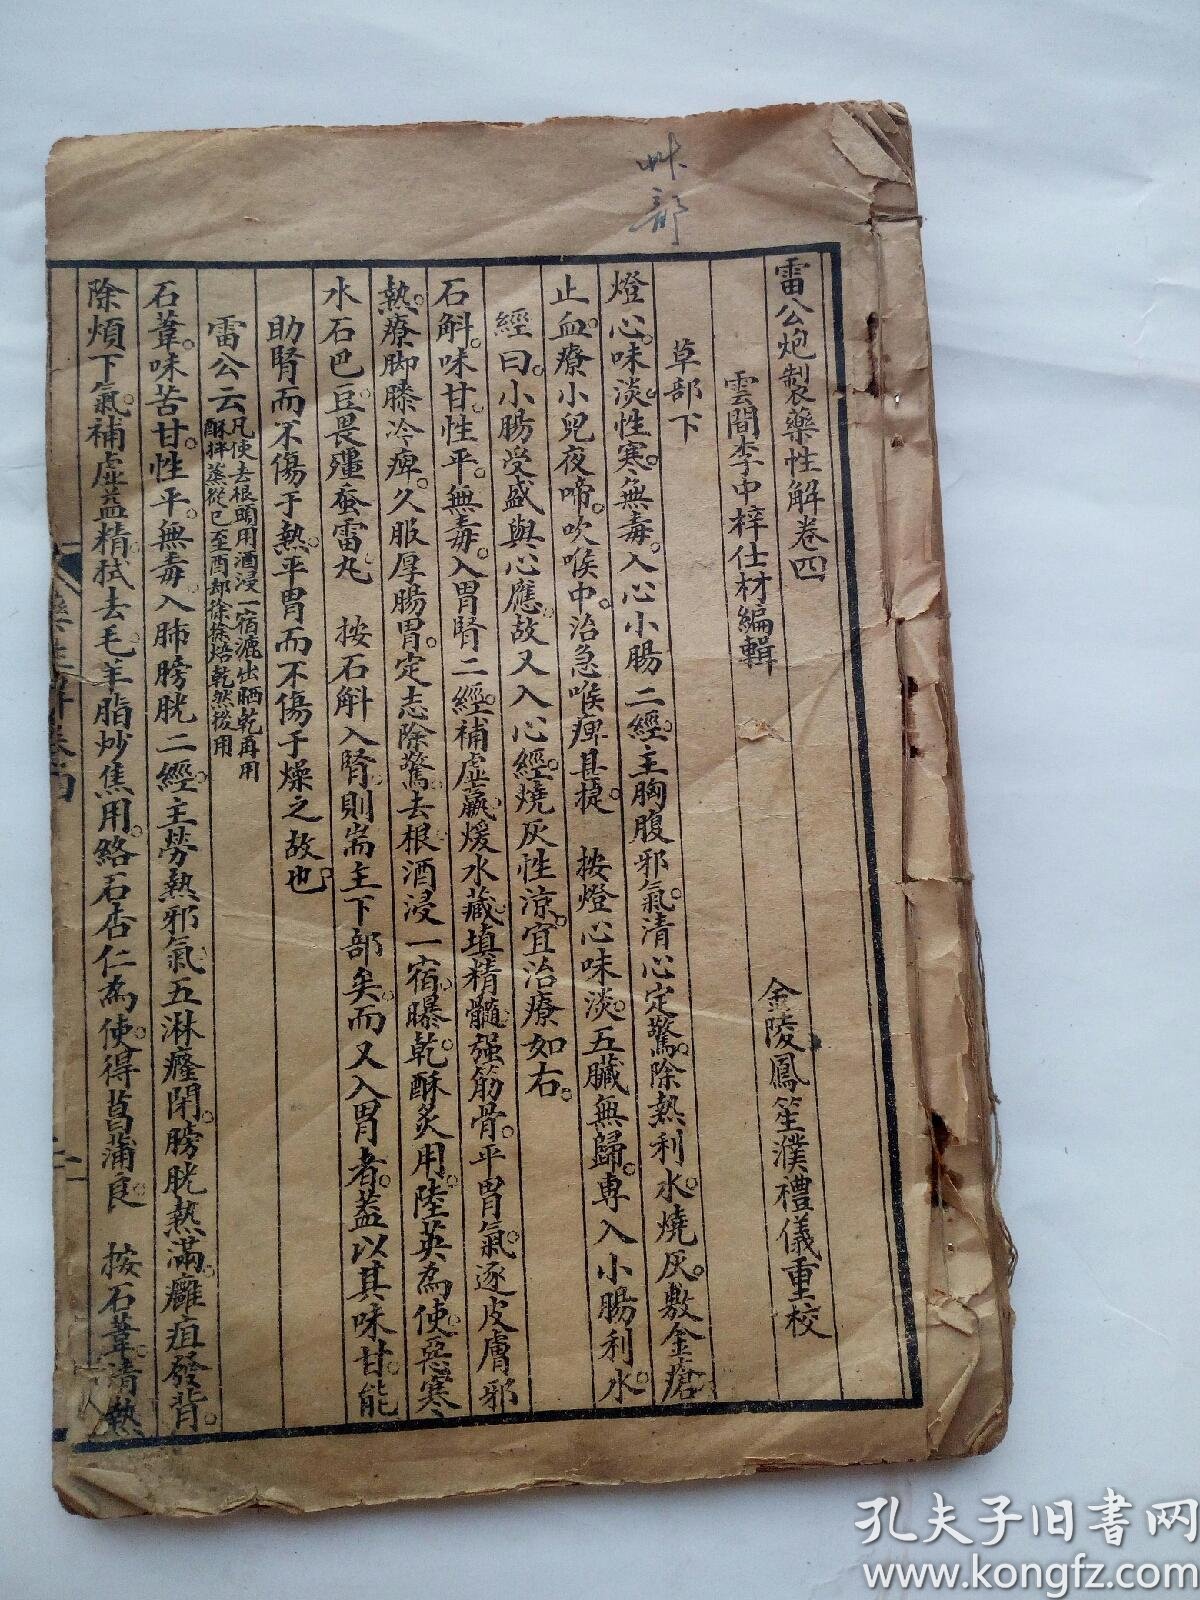 艸部
雷公炮製藥性解卷四
雲間李中梓仕材編輯
金陵鳳笙濮禮儀重校
草部下
燈心。味淡性寒。無毒。入心小腸二經。主胸腹邪氣。清心定驚。除熱利水。燒灰。敷金瘡
止血。療小兒夜啼。吹喉中。治急喉痺甚捷。 按燈心味淡。五臟無歸。專入小腸利水。
經曰。小腸受盛與心應。故又入心經。燒灰性涼。宜治療如右。
石斛。味甘。性平。無毒。入胃腎二經。補虛羸。煖水藏。填精髓。强筋骨。平胃氣。逐皮膚邪
熱。療脚膝冷痺。久服厚腸胃。定志除驚。去根酒浸一宿。曝乾酥炙用。陸英為使。惡寒
水石巴豆。畏殭蚕雷丸 按石斛入腎。則耑主下部矣。而又入胃者。蓋以其味甘。能
助腎而不傷于熱。平胃而不傷于燥之故也
雷公云凡使去根頭用酒浸一宿漉出晒乾再用
酥拌蒸從巳至酉却徐徐焙乾然後用
石葦。味苦甘。性平。無毒。入肺膀胱二經。主勞熱邪氣。五淋癃閉。膀胱熱滿。癰疽發背。
除煩下氣。補虛益精。拭去毛。羊脂炒焦用。絡石杏仁為使。得菖蒲良。 按石葦。清熱
藥性解卷四
孔夫子旧书网
www.kongfz.com